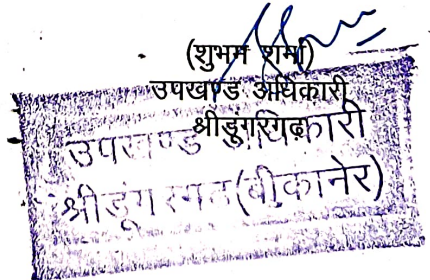 (शुभम शर्मा)
उपखण्ड अधिकारी
श्रीडूंगरगढ़
उपखण्ड अधिकारी
श्रीडूंगरगढ(बीकानेर)